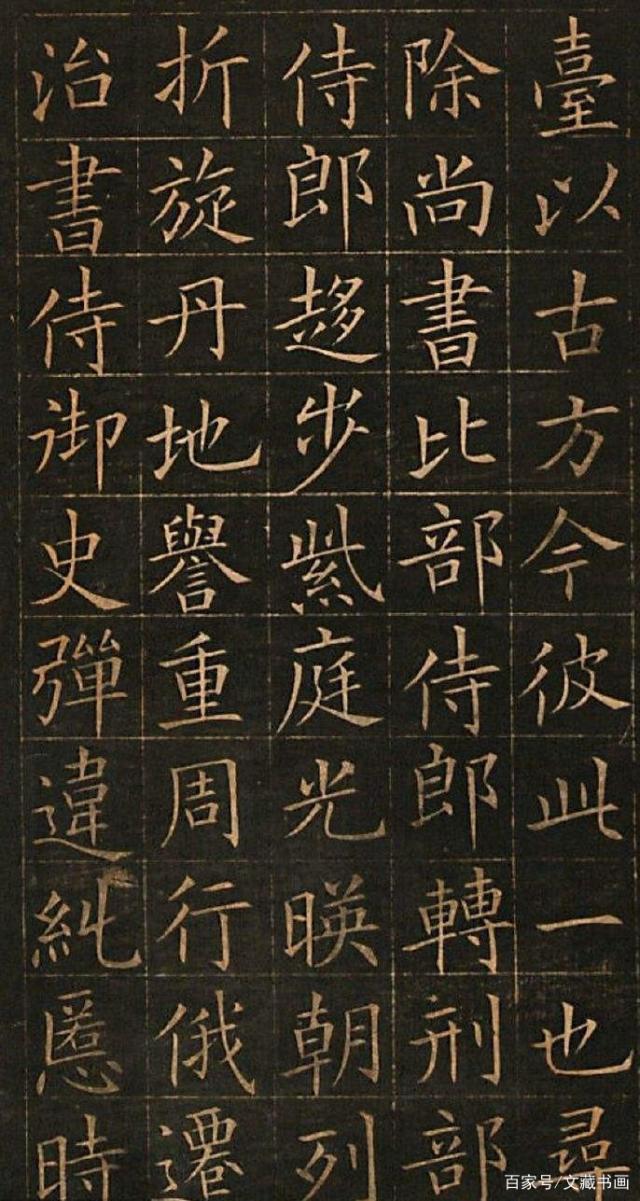 臺以古方今彼此一也尋
除尚書比部侍郎轉刑部
侍郎趍步紫庭光暎朝列
折旋丹地譽重周行俄遷
治書侍御史彈違糺慝時
百家号/文藏书画